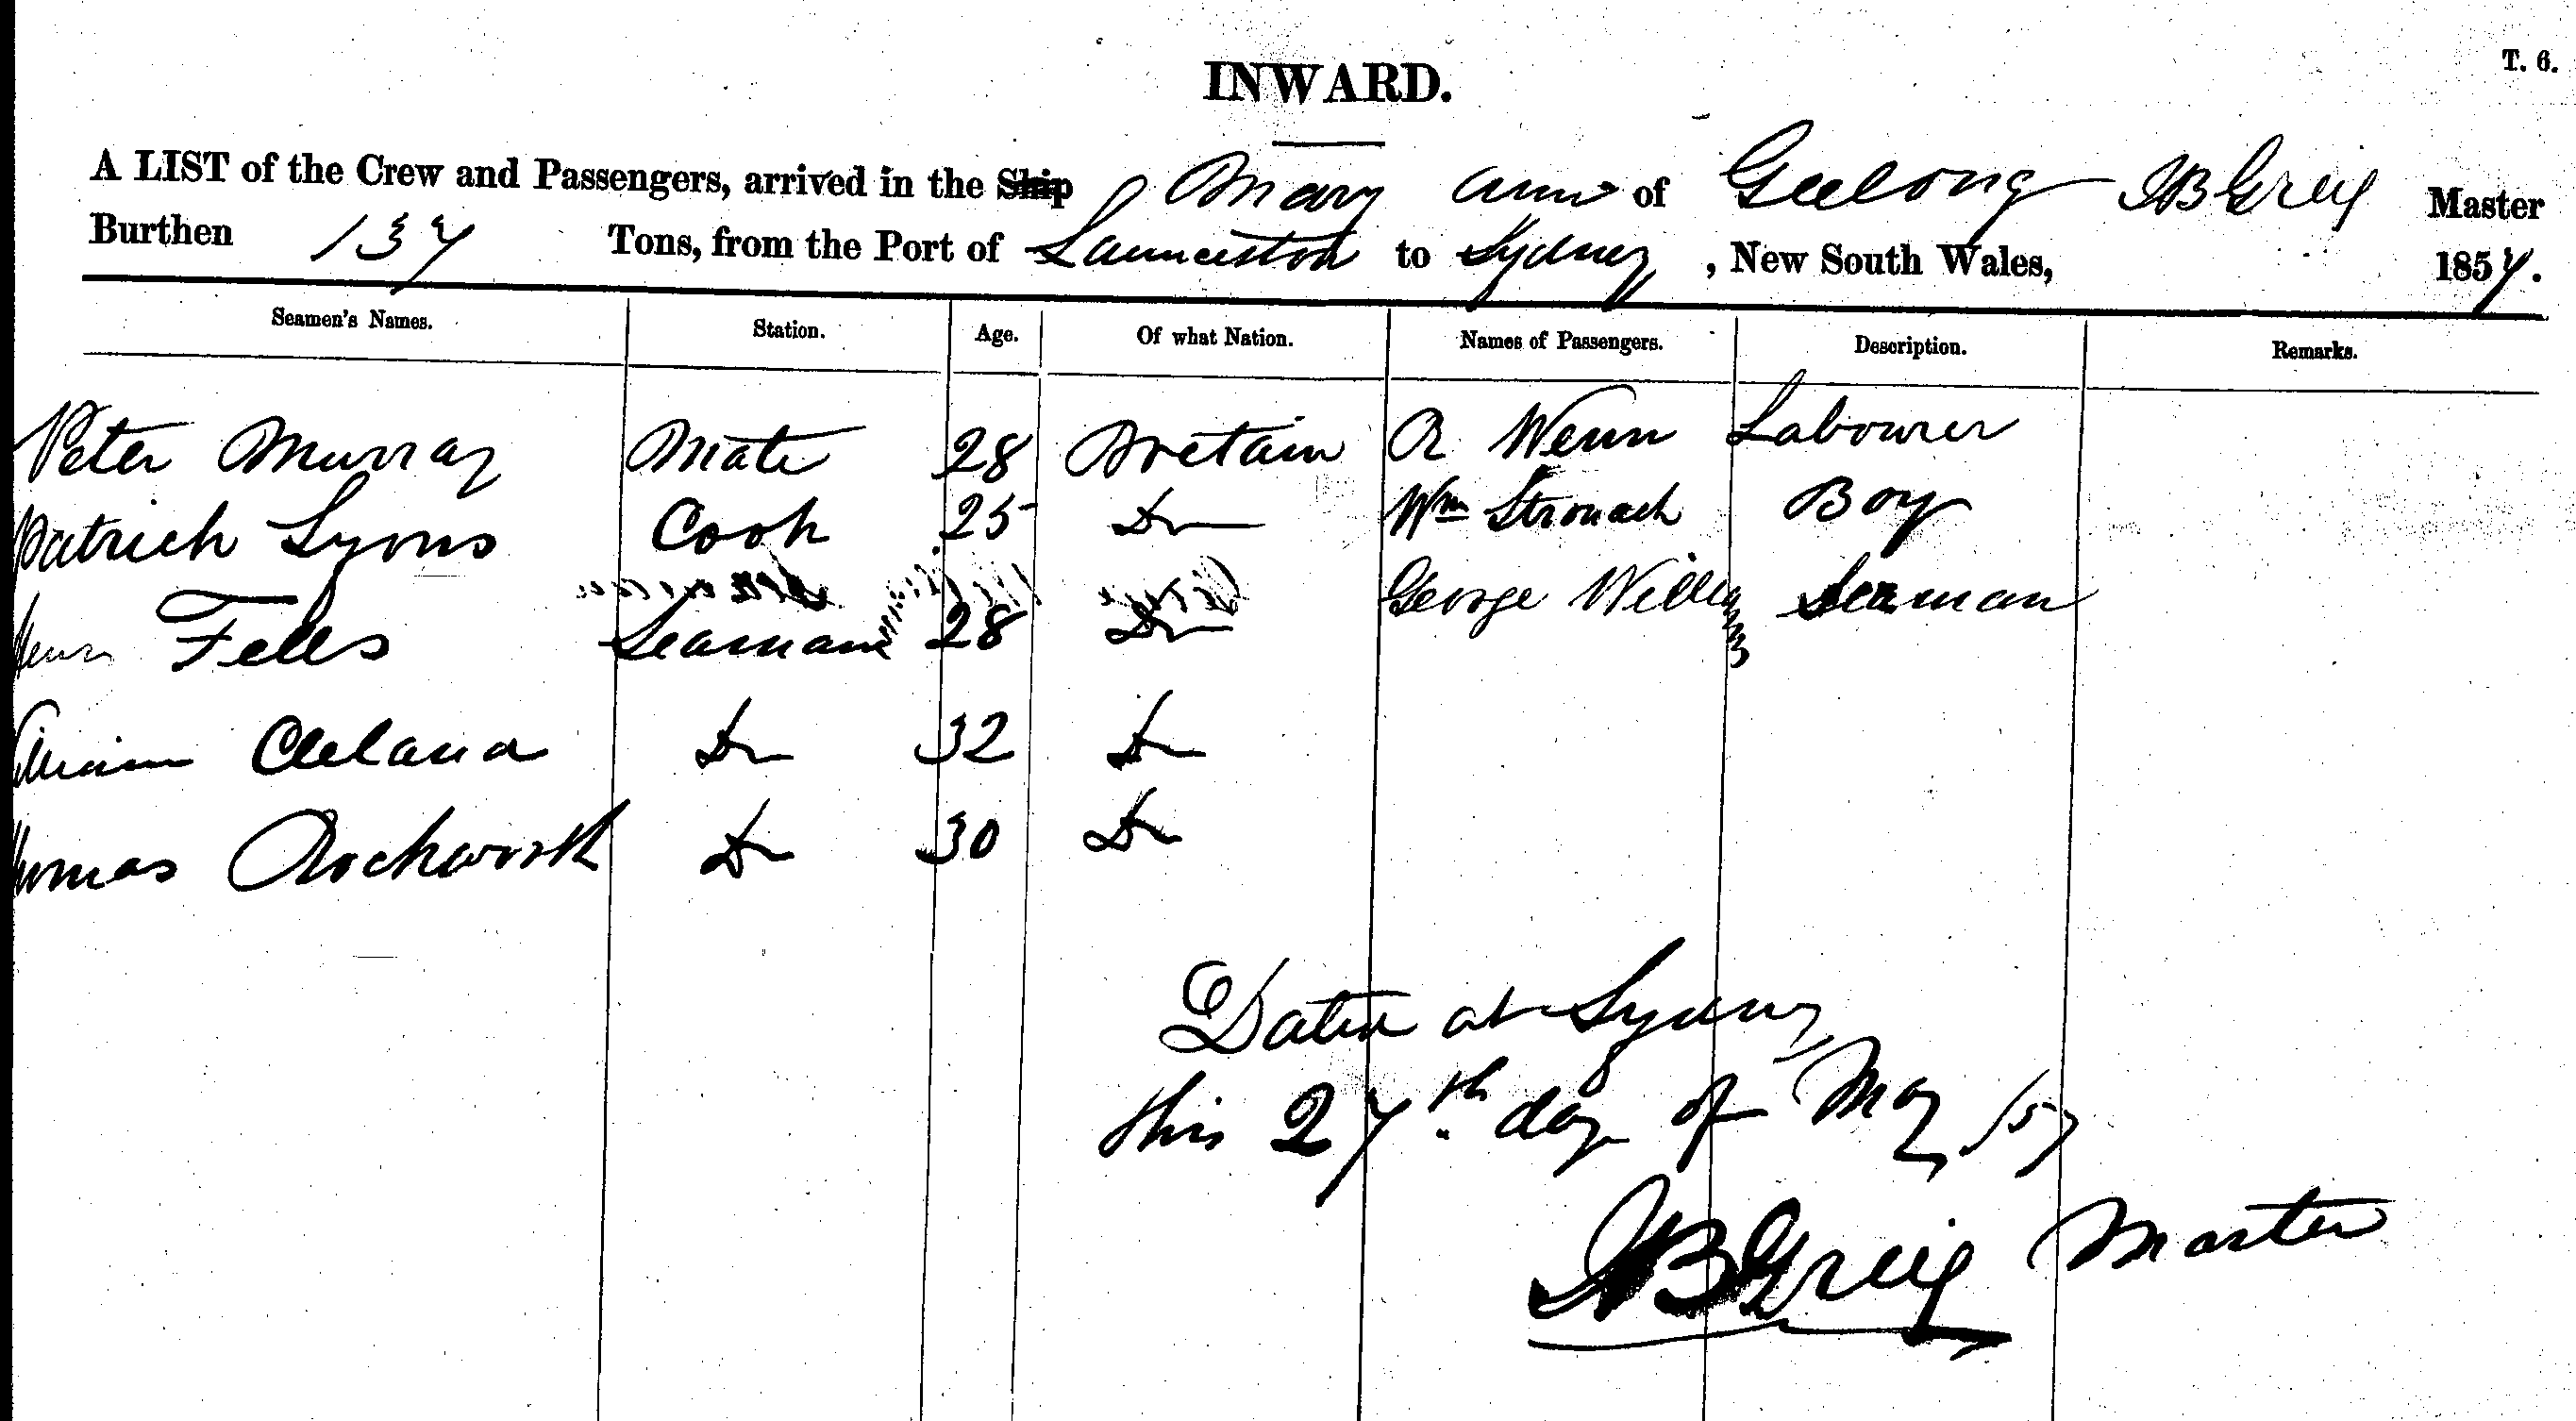 T. 6.
INWARD.
A LIST of the Crew and Passengers, arrived in the Ship Mary Ann of Geelong JB Greig Master
Burthen 137 Tons, from the Port of Launceston to Sydney, New South Wales, 1857.
Seamen's Names. Station. Age. Of what Nation. Names of Passengers. Description. Remarks.
Peter Murray Mate 28 Bretain R Wenn Labourer
Patrick Lyons Cook 25 Do Wm Stronach Boy
Fells Seaman 28 Do George Williams Seaman
William Cleland Do 32 Do
Thomas Rockworth Do 30 Do
Dated at Sydney
this 27th day of May /57
JB Greig Master